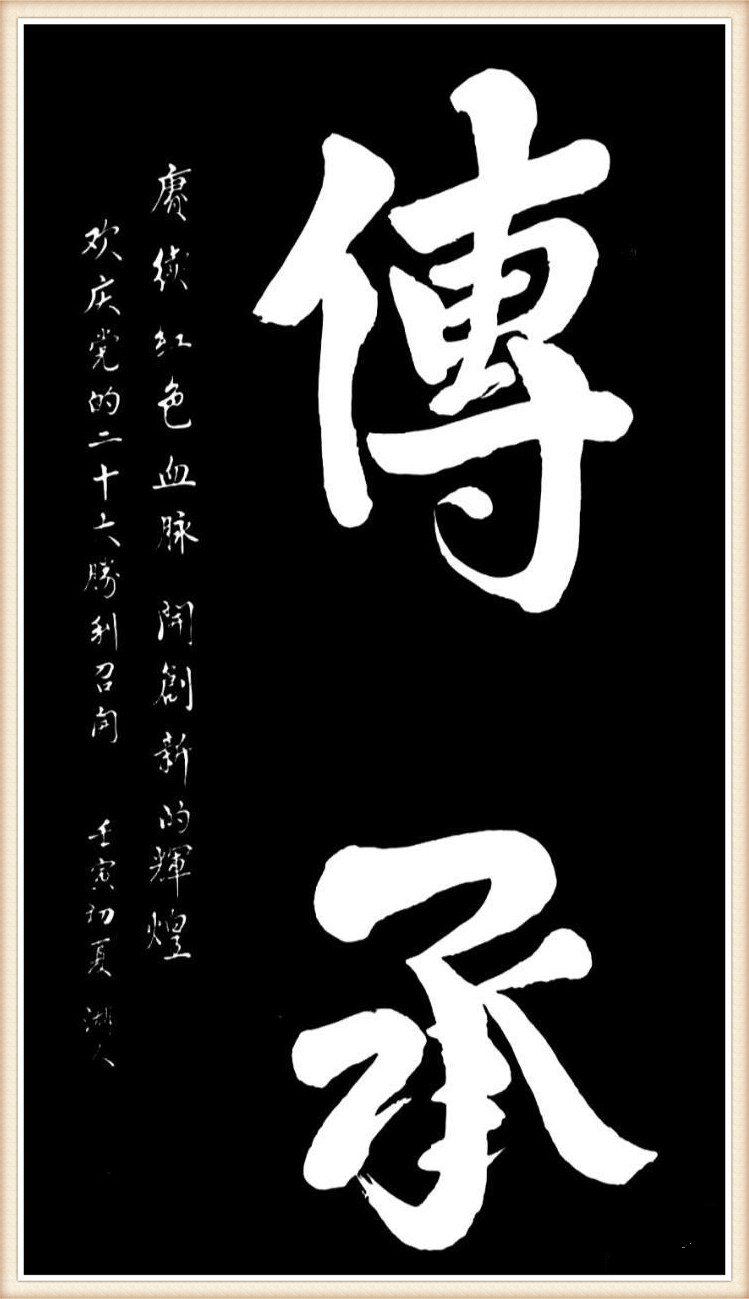 傳承
賡續 红色血脉 開創新的輝煌
欢庆党的二十大勝利召开 壬寅初夏 湖人